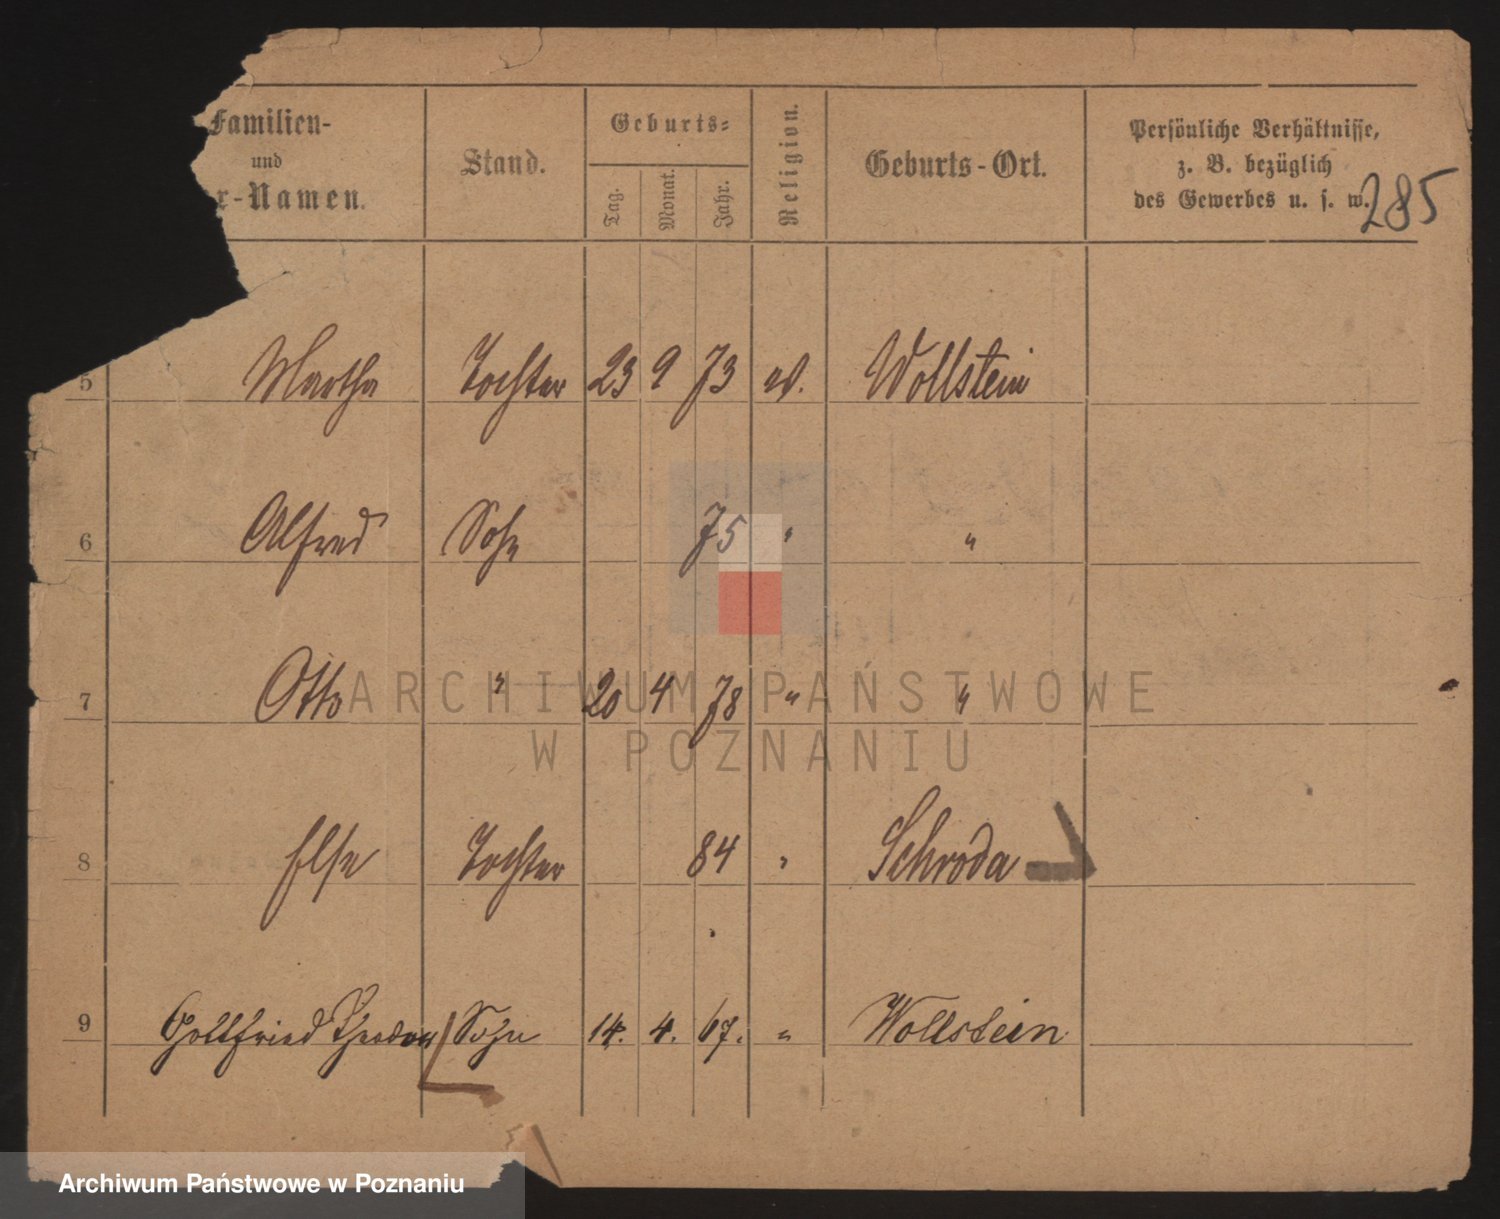 Familien-
und
r-Namen.
Stand.
Geburts-
Tag.
Monat.
Jahr.
Religion.
Geburts-Ort.
Persönliche Verhältnisse,
z. B. bezüglich
des Gewerbes u. s. w.
285
5 Martha Tochter 23 9 73 ev. Wollstein
6 Alfred Sohn 75 " "
7 Otto " 20 4 78 " "
8 Else Tochter 84 " Schroda
9 Gottfried Theodor Sohn 14. 4. 67. " Wollstein
ARCHIWUM PAŃSTWOWE
W POZNANIU
Archiwum Państwowe w Poznaniu